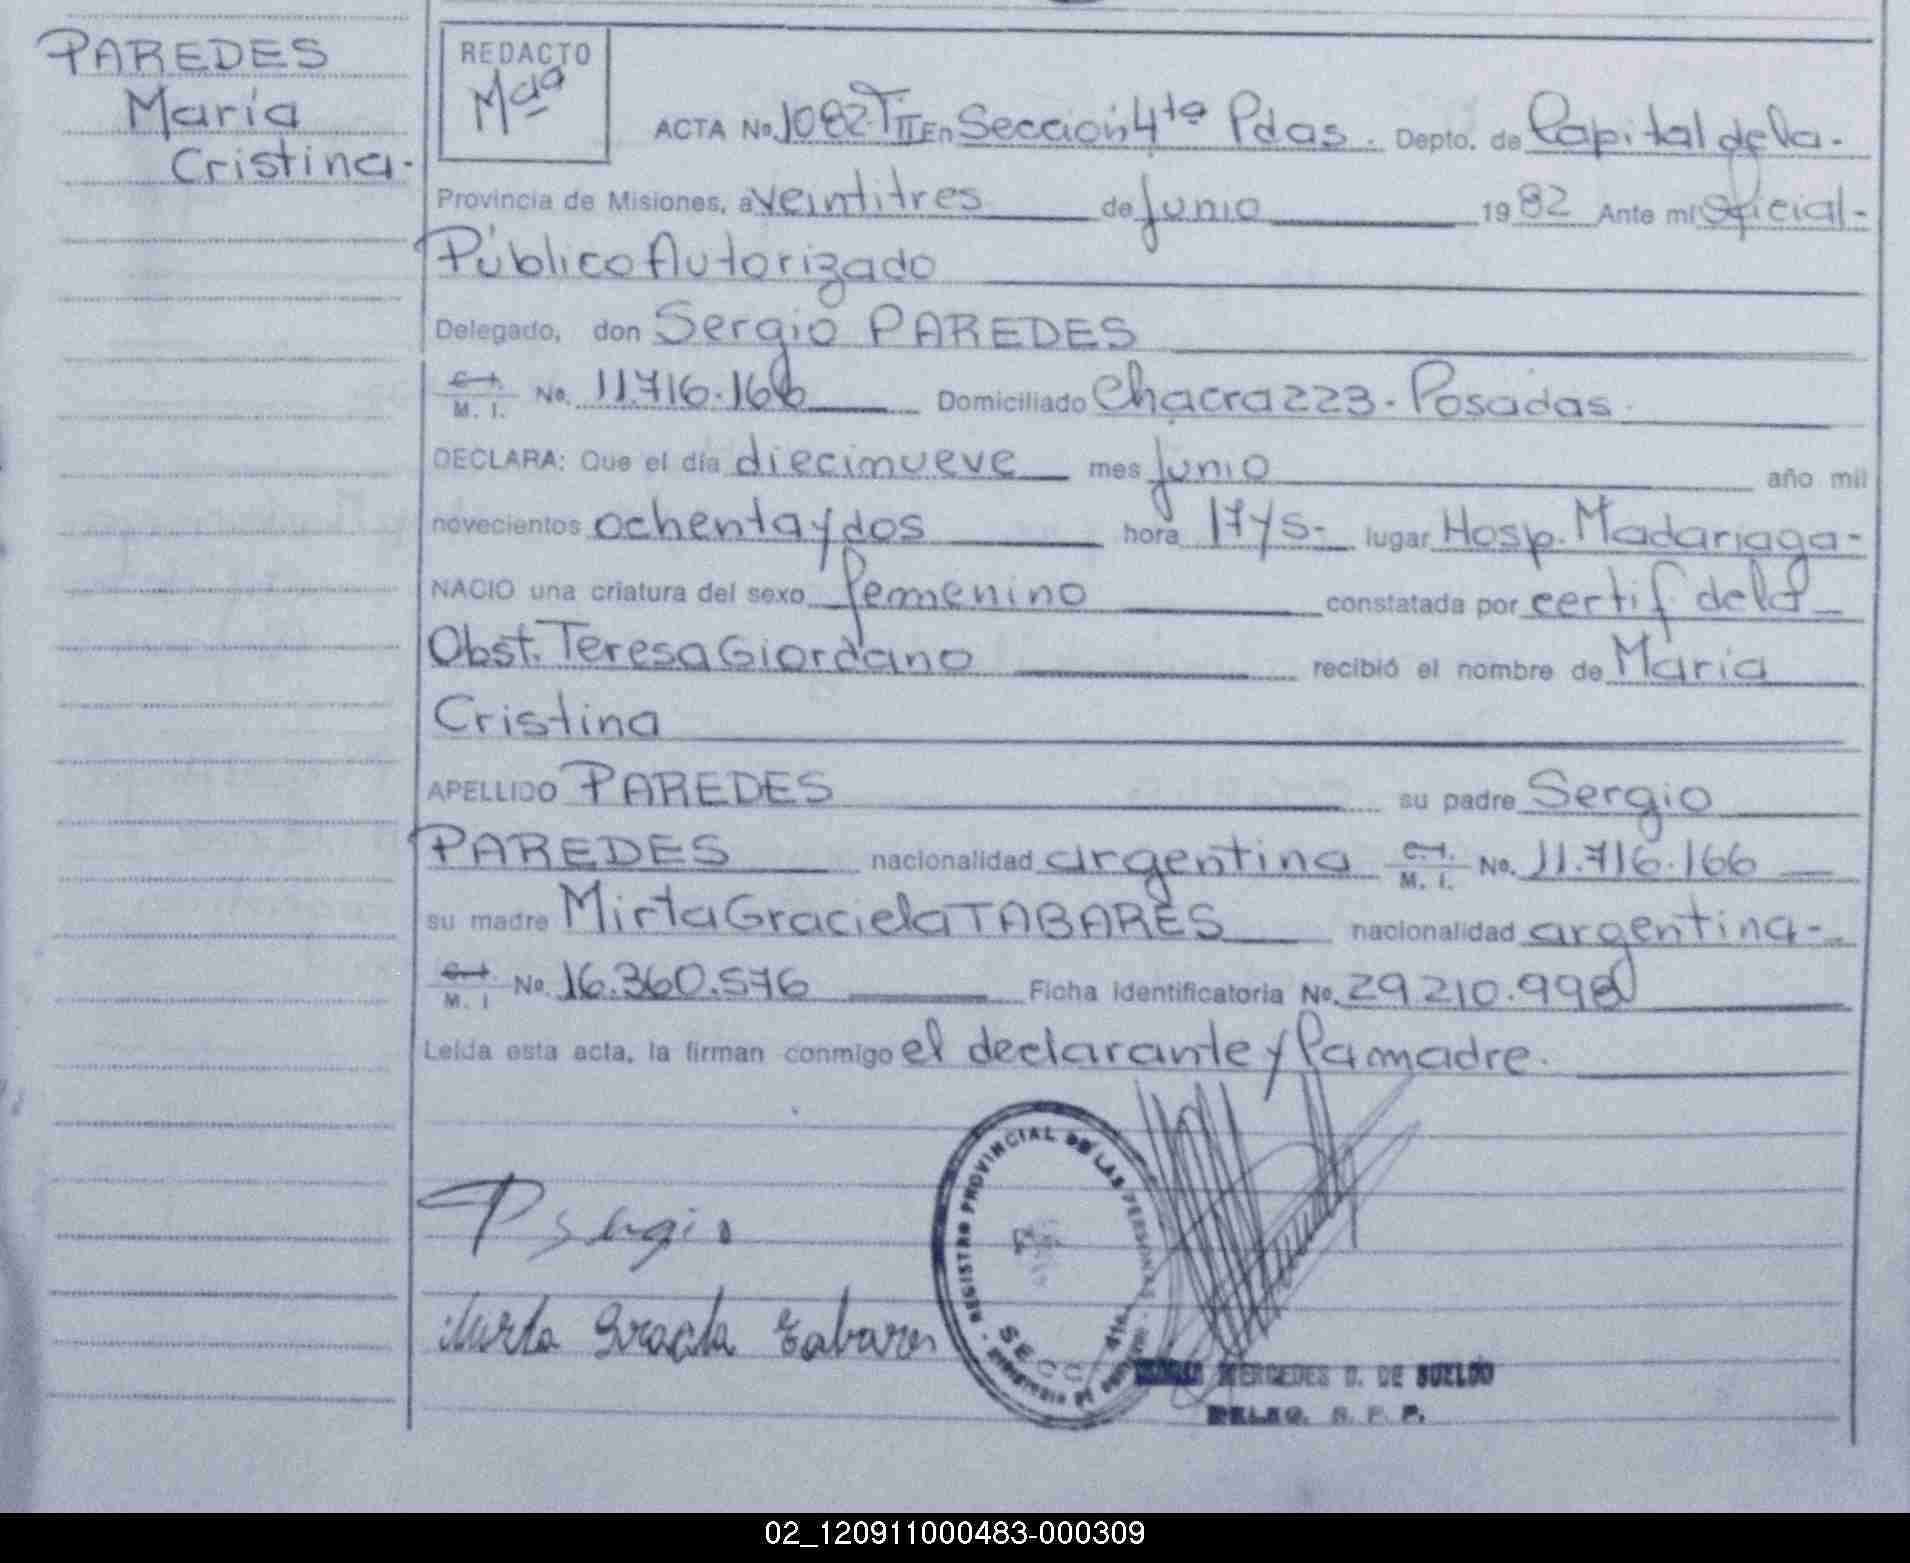 PAREDES
María
Cristina.
REDACTO
Mª
ACTA No. 1082 T II En Sección 4ta Pdas. Depto. de Capital de la.
Provincia de Misiones, a veintitres de Junio 1982 Ante mí Oficial-
Público Autorizado
Delegado, don Sergio PAREDES
C.I. M. I. No. 11.716.166 Domiciliado Chacra 223. Posadas.
DECLARA: Que el día diecinueve mes Junio año mil
novecientos ochenta y dos hora 17 y 5- lugar Hosp. Madariaga-
NACIO una criatura del sexo femenino constatada por certif. de la
Obst. Teresa Giordano recibió el nombre de María
Cristina
APELLIDO PAREDES su padre Sergio
PAREDES nacionalidad argentina C.I. M. I. No. 11.716.166
su madre Mirta Graciela TABARES nacionalidad argentina-
C.I. M. I No. 16.360.576 Ficha Identificatoria No. 29.210.998
Leída esta acta, la firman conmigo el declarante y la madre.
P Sergio
Mirta Graciela Tabares
REGISTRO PROVINCIAL DE LAS PERSONAS
SECC. 4ta.
MERCEDES D. DE SUELDO
DELEG. R. P. P.
02_120911000483-000309